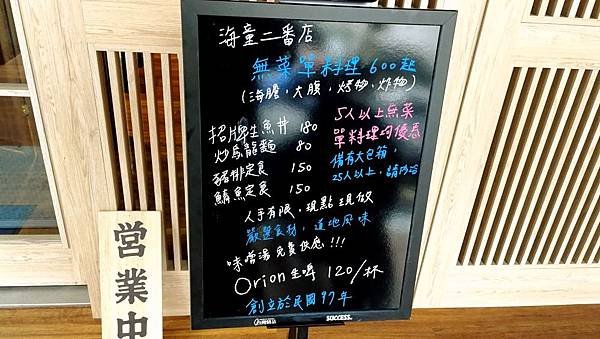 海童二番店
無菜單料理 600起
(海膽，大腹，烤物，炸物)
招牌生魚丼 180
炒烏龍麵 80
豬排定食 150
鯖魚定食 150
5人以上無菜
單料理均優惠
備有大包箱，
25人以上，請內洽
人手有限，現點現做
嚴選食材，道地風味
味噌湯免費供應!!!
Orion生啤 120/杯
創立於民國97年
SUCCESS
營業中